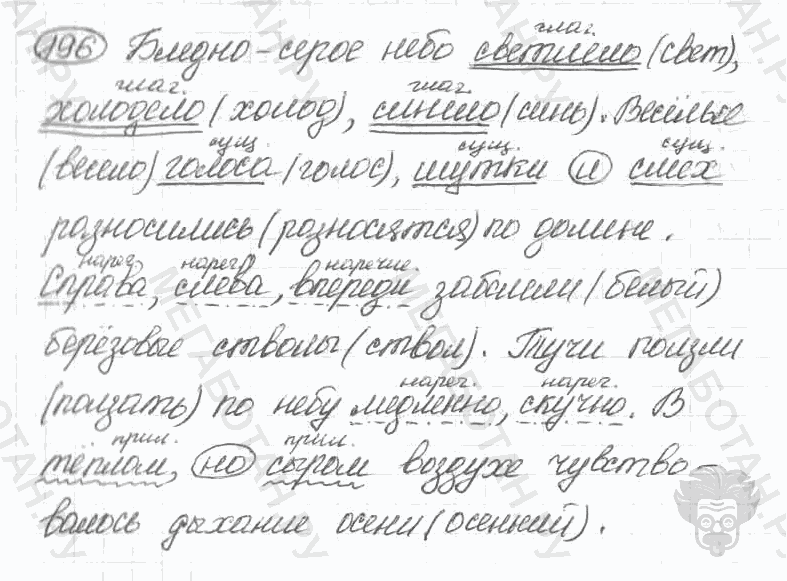 196 Бледно-серое небо светлело (свет),
глаг.
холодело (холод), синело (синь). Весёлые
глаг. глаг.
(весело) голоса (голос), шутки и смех
сущ. сущ. сущ.
разносились (разносятся) по долине.
Справа, слева, впереди забелели (белый)
нареч. нареч. наречие.
берёзовые стволы (ствол). Тучи ползли
(ползать) по небу медленно, скучно. В
нареч. нареч.
тёплом, но сыром воздухе чувство-
прил. прил.
валось дыхание осени (осенний).
МЕГАБОТАН.РУ